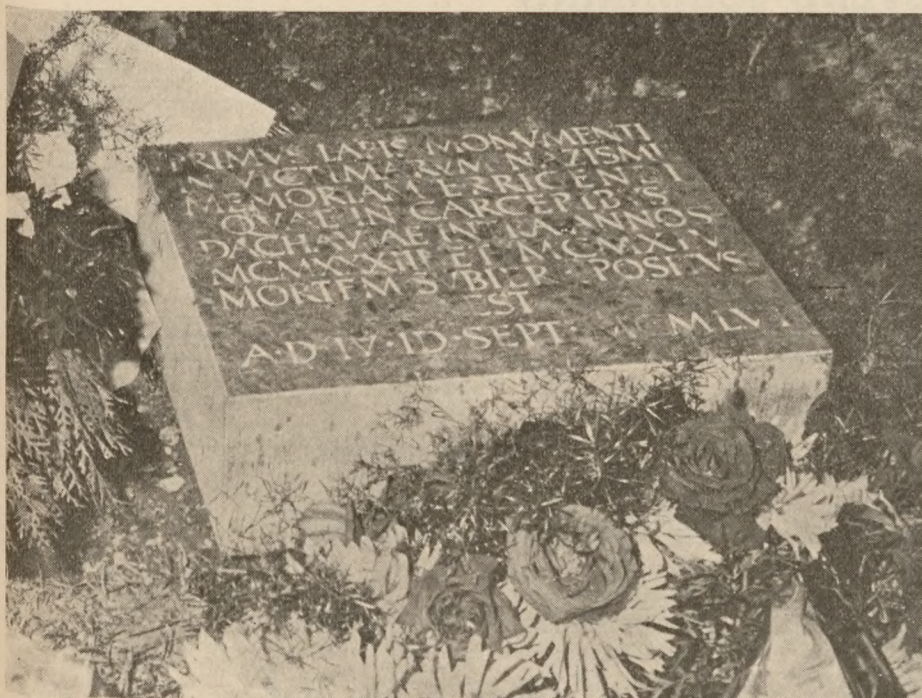 PRIMVS LAPIS MONVMENTI
IN VICTIMARVM NAZISMI
MEMORIAM ERRICENDI
QVAE IN CARCERIBVS
DACHAVAE INTRA ANNOS
MCMXXXIII ET MCMXLV
MORTEM SVBIER POSITVS
EST
A·D·IV·ID·SEPT· MLVI